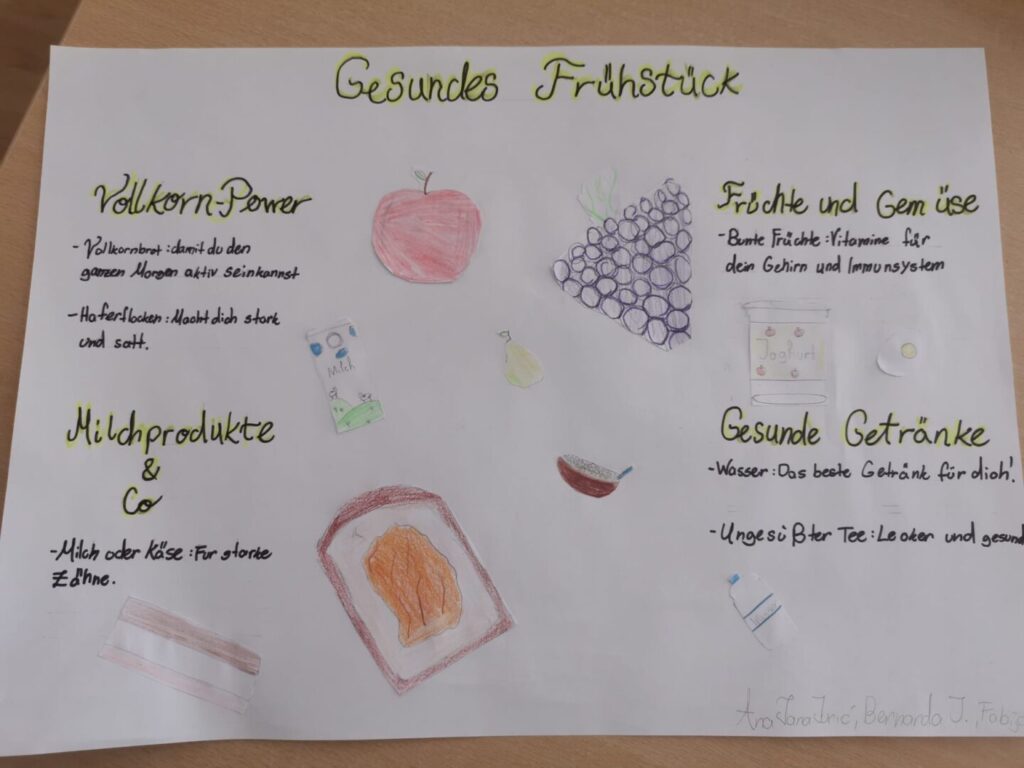 Gesundes Frühstück
Vollkorn-Power
- Vollkornbrot : damit du den
ganzen Morgen aktiv seinkannst
- Haferflocken : Macht dich stark
und satt.
Früchte und Gemüse
- Bunte Früchte : Vitamine für
dein Gehirn und Immunsystem
Milch
Joghurt
Milchprodukte
&
Co
- Milch oder Käse : Fur starke
Zähne.
Gesunde Getränke
- Wasser : Das beste Getränk für dich!
- Ungesüßter Tee : Lecker und gesund
Bernarda J.,